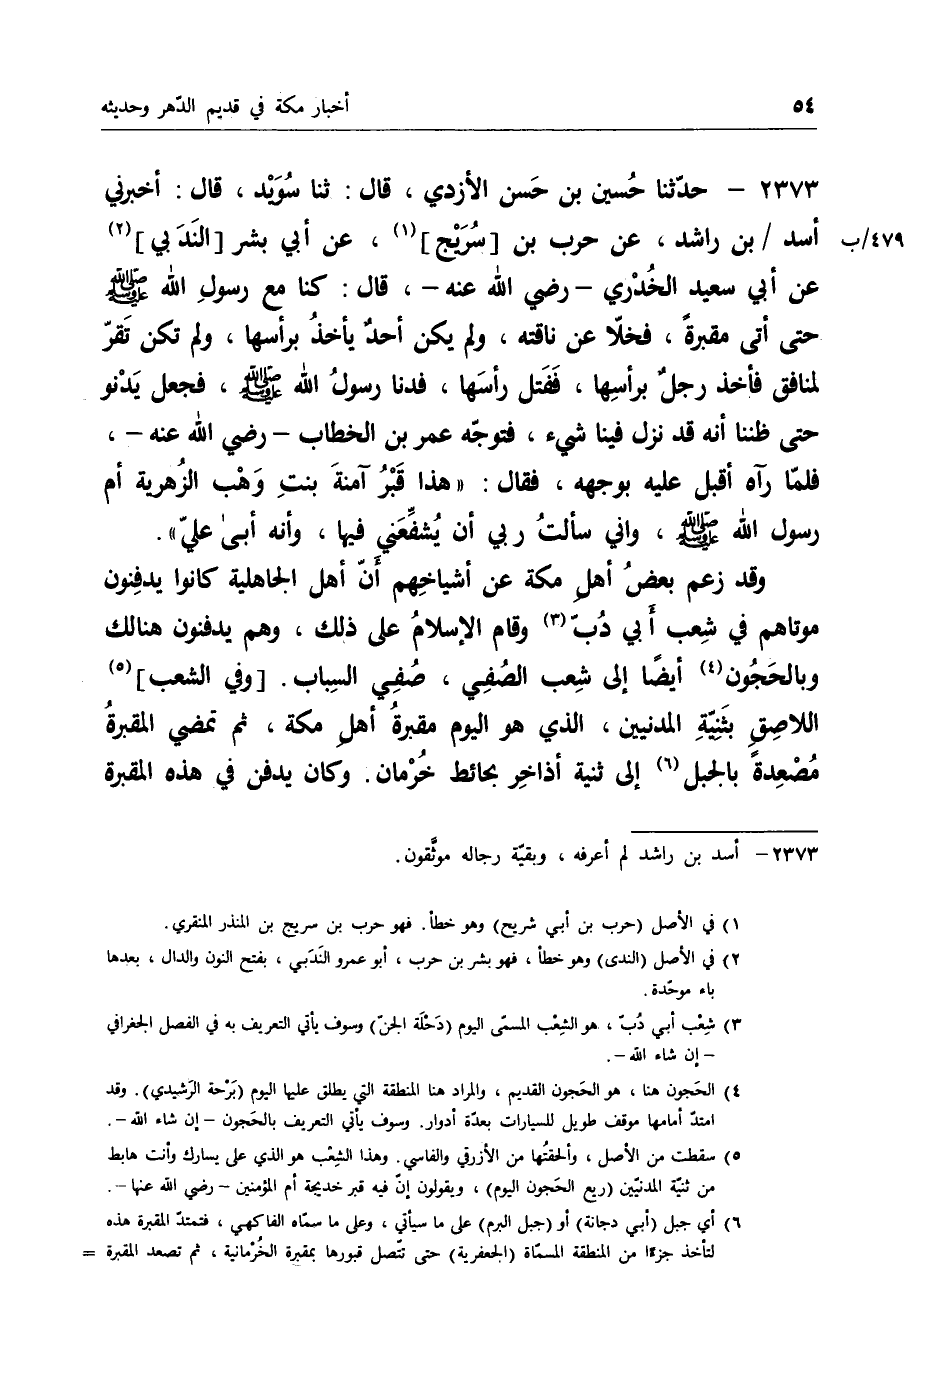 ٥٤ أخبار مكة في قديم الدّهر وحديثه
٢٣٧٣ – حدّثنا حُسين بن حَسن الأزدي ، قال : ثنا سُوَيْد ، قال : أخبرني
٤٧٩/ب أسد / بن راشد ، عن حرب بن [سُرَيْج](١) ، عن أبي بشر [النَدَبي](٢)
عن أبي سعيد الخُدْري – رضي الله عنه – ، قال : كنا مع رسولِ الله ﷺ
حتى أتى مقبرةً ، فخلّا عن ناقته ، ولم يكن أحدٌ يأخذُ برأسها ، ولم تكن تَقرّ
لمنافق فأخذ رجلٌ برأسِها ، فَفَتل رأسَها ، فدنا رسولُ الله ﷺ ، فجعل يَدْنو
حتى ظننا أنه قد نزل فينا شيء ، فتوجّه عمر بن الخطاب – رضي الله عنه – ،
فلمّا رآه أقبل عليه بوجهه ، فقال : «هذا قَبْرُ آمنةَ بنتِ وَهْب الزُهرية أم
رسول الله ﷺ ، واني سألتُ ربي أن يُشفِّعَني فيها ، وأنه أبىٰ عليّ» .
وقد زعم بعضُ أهلِ مكة عن أشياخِهم أَنّ أهل الجاهلية كانوا يدفِنون
موتاهم في شِعب أَبي دُبّ(٣) وقام الإسلامُ على ذلك ، وهم يدفنون هنالك
وبالحَجُون(٤) أيضًا إلى شِعب الصُفِي ، صُفِي السِباب . [وفي الشعب](٥)
اللاصِقِ بثَنِيّةِ المدنيين ، الذي هو اليوم مقبرةُ أهلِ مكة ، ثم تمضي المقبرةُ
مُصْعِدةً بالجبل(٦) إلى ثنية أذاخِر بحائط خُرْمان . وكان يدفن في هذه المقبرة
٢٣٧٣– أسد بن راشد لم أعرفه ، وبقيّة رجاله موثَّقون .
١) في الأصل (حرب بن أبي شريح) وهو خطأ . فهو حرب بن سريج بن المنذر المنقري .
٢) في الأصل (الندى) وهو خطأ ، فهو بشر بن حرب ، أبو عمرو النَدَبي ، بفتح النون والدال ، بعدها
باء موحّدة .
٣) شِعْب أبي دُبّ ، هو الشِعْب المسمّى اليوم (دَحْلَة الجنّ) وسوف يأتي التعريف به في الفصل الجغرافي
– إن شاء الله – .
٤) الحَجون هنا ، هو الحَجون القديم ، والمراد هنا المنطقة التي يطلق عليها اليوم (بَرْحة الرَشيدي) . وقد
امتدّ أمامها موقف طويل للسيارات بعدّة أدوار . وسوف يأتي التعريف بالحَجون – إن شاء الله – .
٥) سقطت من الأصل ، وألحقتُها من الأزرقي والفاسي . وهذا الشِعْب هو الذي على يسارك وأنت هابط
من ثنيّة المدنيّين (ربع الحَجون اليوم) ، ويقولون إنّ فيه قبر خديجة أم المؤمنين – رضي الله عنها – .
٦) أي جبل (أبي دجانة) أو (جبل البرم) على ما سيأتي ، وعلى ما سمّاه الفاكهي ، فتمتدّ المقبرة هذه
لتأخذ جزءًا من المنطقة المسمّاة (الجعفرية) حتى تتّصل قبورها بمقبرة الخُرْمانية ، ثم تصعد المقبرة =